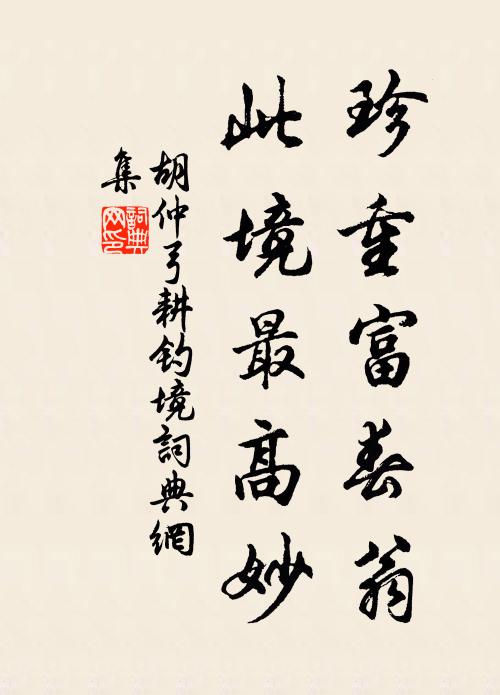 珍重富春翁
此境最高妙
胡仲弓耕釣境詞典網
集
詞典
网印